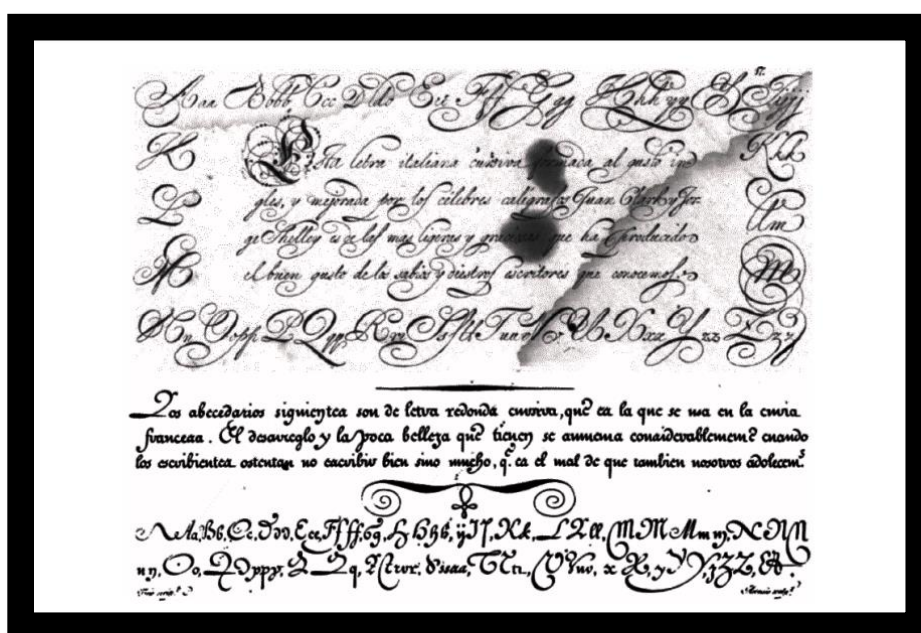 Aaa Bbbb Ccc Dddd Eee Fff Ggg Hhh yy Tijj
K Kkk
Esta letra italiana cursiva formada al gusto in
gles, y mejorada por los célebres caligrafos Juan Clark y Jor
L Llm
ge Shelley es de las mas ligeras y graciosas que ha producido
M M
el buen gusto de los sabios y diestros escritores que conocemos.
Nn Oopp P Qqq Rrr Sssss Ttuu V X Xxx Yzz Zzz
Los abecedarios siguientes son de letra redonda cursiva, que es la que se usa en la curia
francesa. El desarreglo y la poca belleza que tienen se aumenta considerablemente cuando
los escribientes ostentan no escribir bien sino mucho, q.e es el mal de que tambien nosotros adolecem.s
Aa, Bb, Cc, Ddd, Eee, Ffff, Gg, Hhh, Kk, L Ll, M M M m, N N N
n, Oo, Pppp, Q Qq, Rrrr, Sssss, Ttt, Vvv, x X, y Y Y, z Z Z, &.